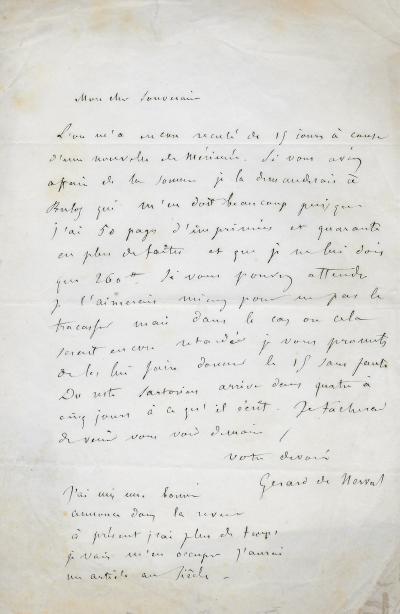 Mon cher Souverain
L'on m'a encore reculé de 15 jours à cause
d'une nouvelle de Mérimée. Si vous avez
affaire de la somme je la demanderais à
Buloz qui m'en doit beaucoup puisque
j'ai 50 pages d'imprimées et quarante
en plus de faites et que je ne lui dois
que 260 ft. Si vous pouvez attendre
je l'aimerais mieux pour ne pas le
tracasser mais dans le cas où cela
serait encore retardé je vous promets
de les lui faire donner le 15 sans faute
Du reste Sartorius arrive dans quatre à
cinq jours à ce qu'il écrit. Je tâcherai
de venir vous voir demain
votre dévoué
Gérard de Nerval
J'ai mis une bonne
annonce dans la revue
à présent j'ai plus de temps,
je vais m'en occuper j'aurai
un article au Siècle.